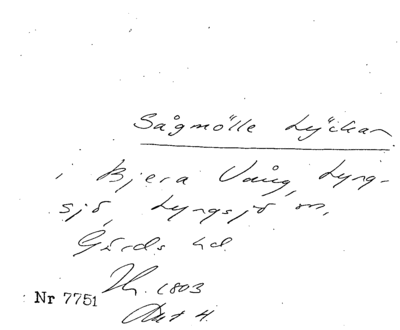 Sågmölle Lyckan
i Bjera Vång, Lyng-
sjö, Lyngsjö sn,
Gärds hd.
1803
Nr 7751
Akt 4.